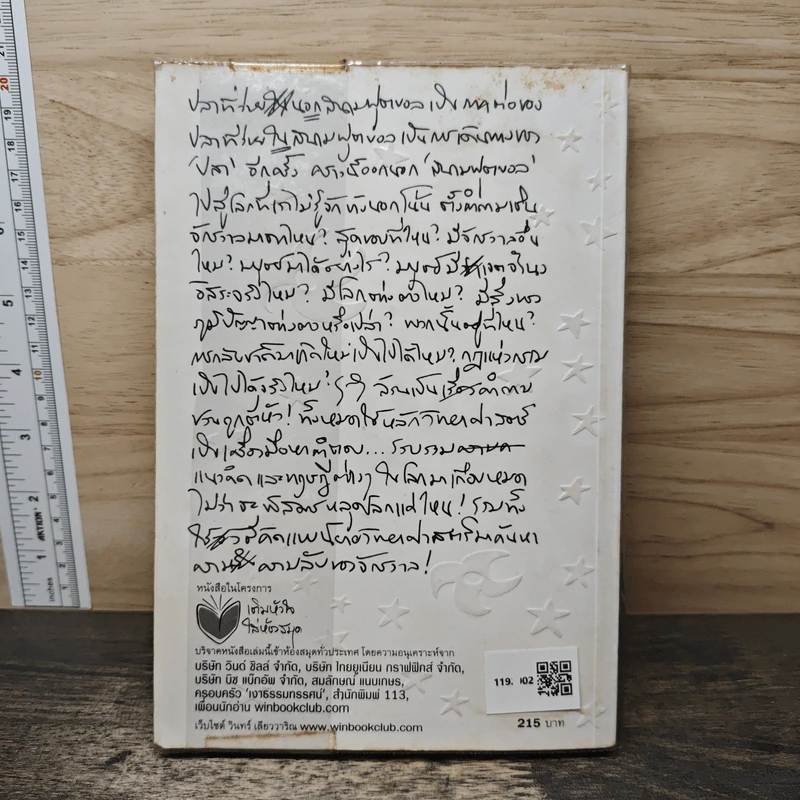 ปลาที่ว่ายนอกสนามฟุตบอล เป็นภาคต่อของ
ปลาที่ว่ายในสนามฟุตบอล เป็นการเดินทางของ
'ปลา' อีกครั้ง คราวนี้ออกนอก 'สนามฟุตบอล'
ไปสู่โลกที่เราไม่รู้จักข้างนอกโน้น ตั้งคำถามเช่น
จักรวาลมาจากไหน? สุดขอบที่ไหน? มีจักรวาลอื่น
ไหม? มนุษย์มาได้อย่างไร? มนุษย์มีเจตจำนง
อิสระจริงไหม? มีโลกต่างดาวไหม? มีสิ่งทรง
ภูมิปัญญาต่างดาวหรือเปล่า? พวกนั้นอยู่ที่ไหน?
การกลับชาติมาเกิดใหม่เป็นไปได้ไหม? กฎแห่งกรรม
เป็นไปได้จริงไหม? ฯลฯ ล้วนเป็นเรื่องคำถาม
ชวนถูกตีหัว! ทั้งหมดใช้หลักวิทยาศาสตร์
เป็นเครื่องมือหาคำตอบ... รวบรวม
แนวคิดและทฤษฎีต่างๆ ในโลกมาเกือบหมด
ไม่ว่าจะพิสดารหลุดโลกแค่ไหน! รวมทั้ง
ใช้วิธีคิดแบบโยงวิทยาศาสตร์มาค้นหา
ความลับของจักรวาล!
หนังสือในโครงการ
เติมหัวใจ
ใส่ห้องสมุด
บริจาคหนังสือเล่มนี้เข้าห้องสมุดทั่วประเทศ โดยความอนุเคราะห์จาก
บริษัท วินด์ ชิลล์ จำกัด, บริษัท ไทยยูเนียน กราฟฟิกส์ จำกัด,
บริษัท บิช แบ็กอัพ จำกัด, สมลักษณ์ แนบเกษร,
ครอบครัว 'เงาธรรมทรรศน์', สำนักพิมพ์ 113,
เพื่อนนักอ่าน winbookclub.com
เว็บไซต์ วินทร์ เลียววาริณ www.winbookclub.com
215 บาท
AKTION
inches